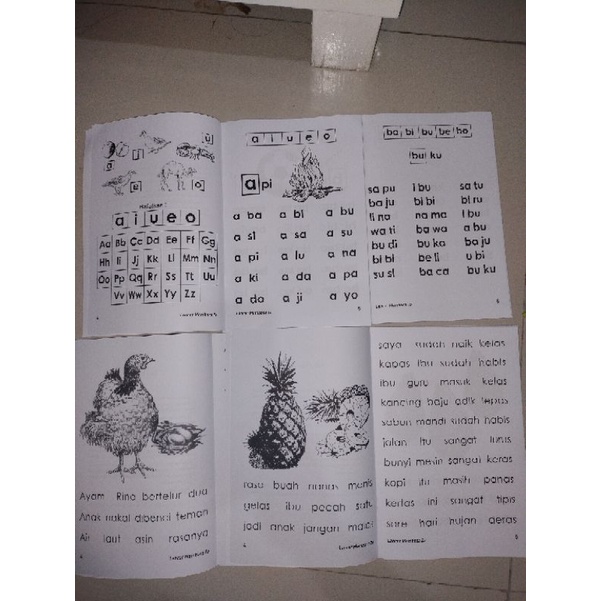 u
a
i
e
o
a i u e o
Aa Bb Cc Dd Ee Ff Gg
Hh Ii Jj Kk Ll Mm Nn
Oo Pp Qq Rr Ss Tt Uu
Vv Ww Xx Yy Zz
4
a i u e o
a pi
a ba a bi a bu
a si a sa a su
a pi a lu a na
a ki a da a pa
a da a ji a yo
5
ba bi bu be bo
bu ku
sa pu i bu sa tu
ba ju bi bi bi ru
li na na ma i bu
wa ti ba wa a bu
bu di bu ka ba ju
bi bi be li u bi
su si ba ca bu ku
6
Ayam Rina bertelur dua
Anak nakal dibenci teman
Air laut asin rasanya
rasa buah nanas manis
gelas ibu pecah satu
jadi anak jangan malas
saya sudah naik kelas
kapas ibu sudah habis
ibu guru masuk kelas
kancing baju adik lepas
sabun mandi sudah habis
jalan itu sangat lurus
bunyi mesin sangat keras
kopi itu masih panas
kertas ini sangat tipis
sore hari hujan deras